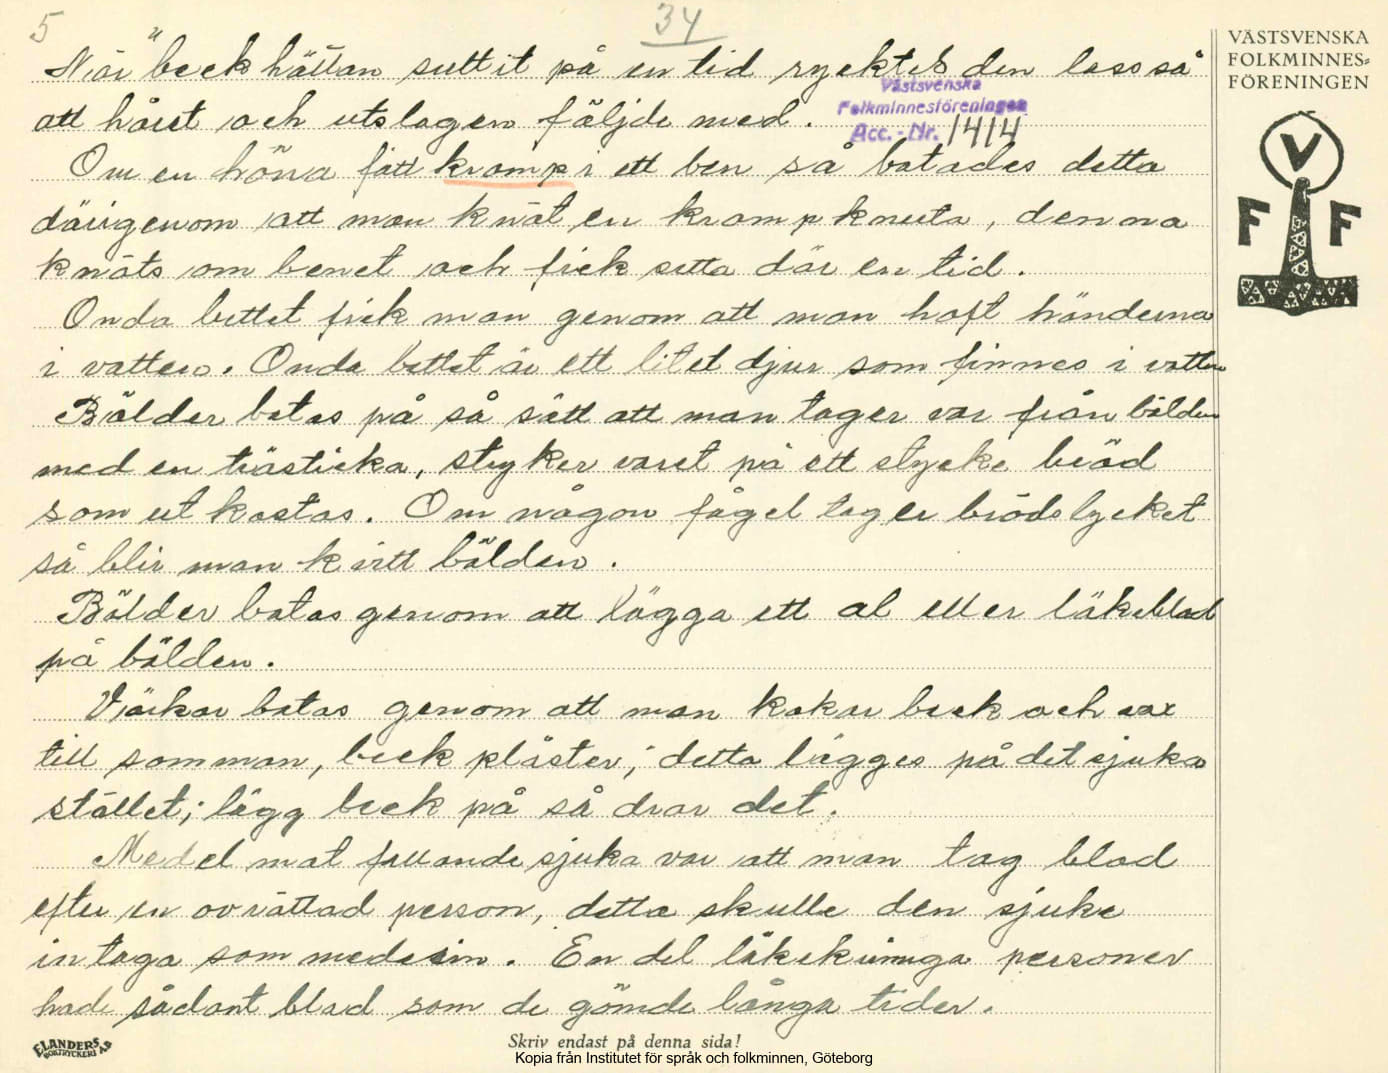 5
34
När "beckhättan suttit på en tid rycktes den loss så
att håret och utslagen följde med.
Västsvenska
Folkminnesföreningen
Acc.-Nr. 1414
Om en höna fått kramp i ett ben så botades detta
därigenom att man knöt en krampknuta, denna
knöts om benet och fick sitta där en tid.
Onda bettet fick man genom att man haft händerna
i vatten. Onda bettet är ett litet djur som finnes i vatten
Bölder botas på så sätt att man tager var från bölden
med en trästicka, stryker varet på ett stycke bröd
som ut kastas. Om någon fågel tager brödstycket
så blir man kvitt bölden.
Bölder botas genom att lägga ett al eller läkeblad
på bölden.
Värkar botas genom att man kokar beck och vax
till somman, beck pläster; detta lägges på det sjuka
stället; lägg beck på så drar det.
Medel mot fallande sjuka var att man tog blod
efter en avrättad person, detta skulle den sjuke
intaga som medesin. En del läkekunniga personer
hade sådant blod som de gömde långa tider.
VÄSTSVENSKA
FOLKMINNES=
FÖRENINGEN
V
F F
ELANDERS
BOKTRYCKERI A.B
Skriv endast på denna sida!
Kopia från Institutet för språk och folkminnen, Göteborg